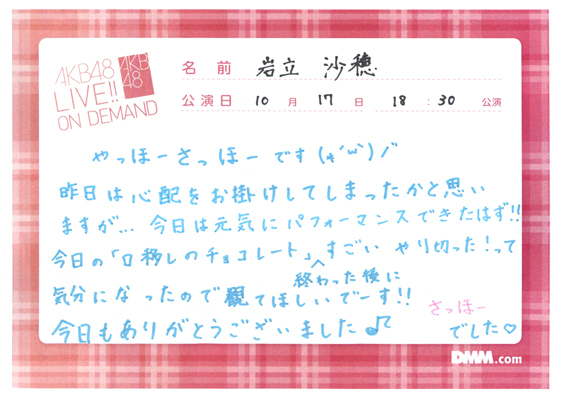 AKB48
LIVE!!
ON DEMAND
AKB
48
名前 岩立 沙穂
公演日 10月 17日 18:30 公演
やっほーさっほーです(*´ω`)ノ
昨日は心配をお掛けしてしまったかと思い
ますが... 今日は元気にパフォーマンスできたはず!!
今日の「口移しのチョコレート」すごい やり切った!って
終わった後に
気分になったので観てほしいでーす!!
今日もありがとうございました♪
さっほー
でした♡
DMM.com